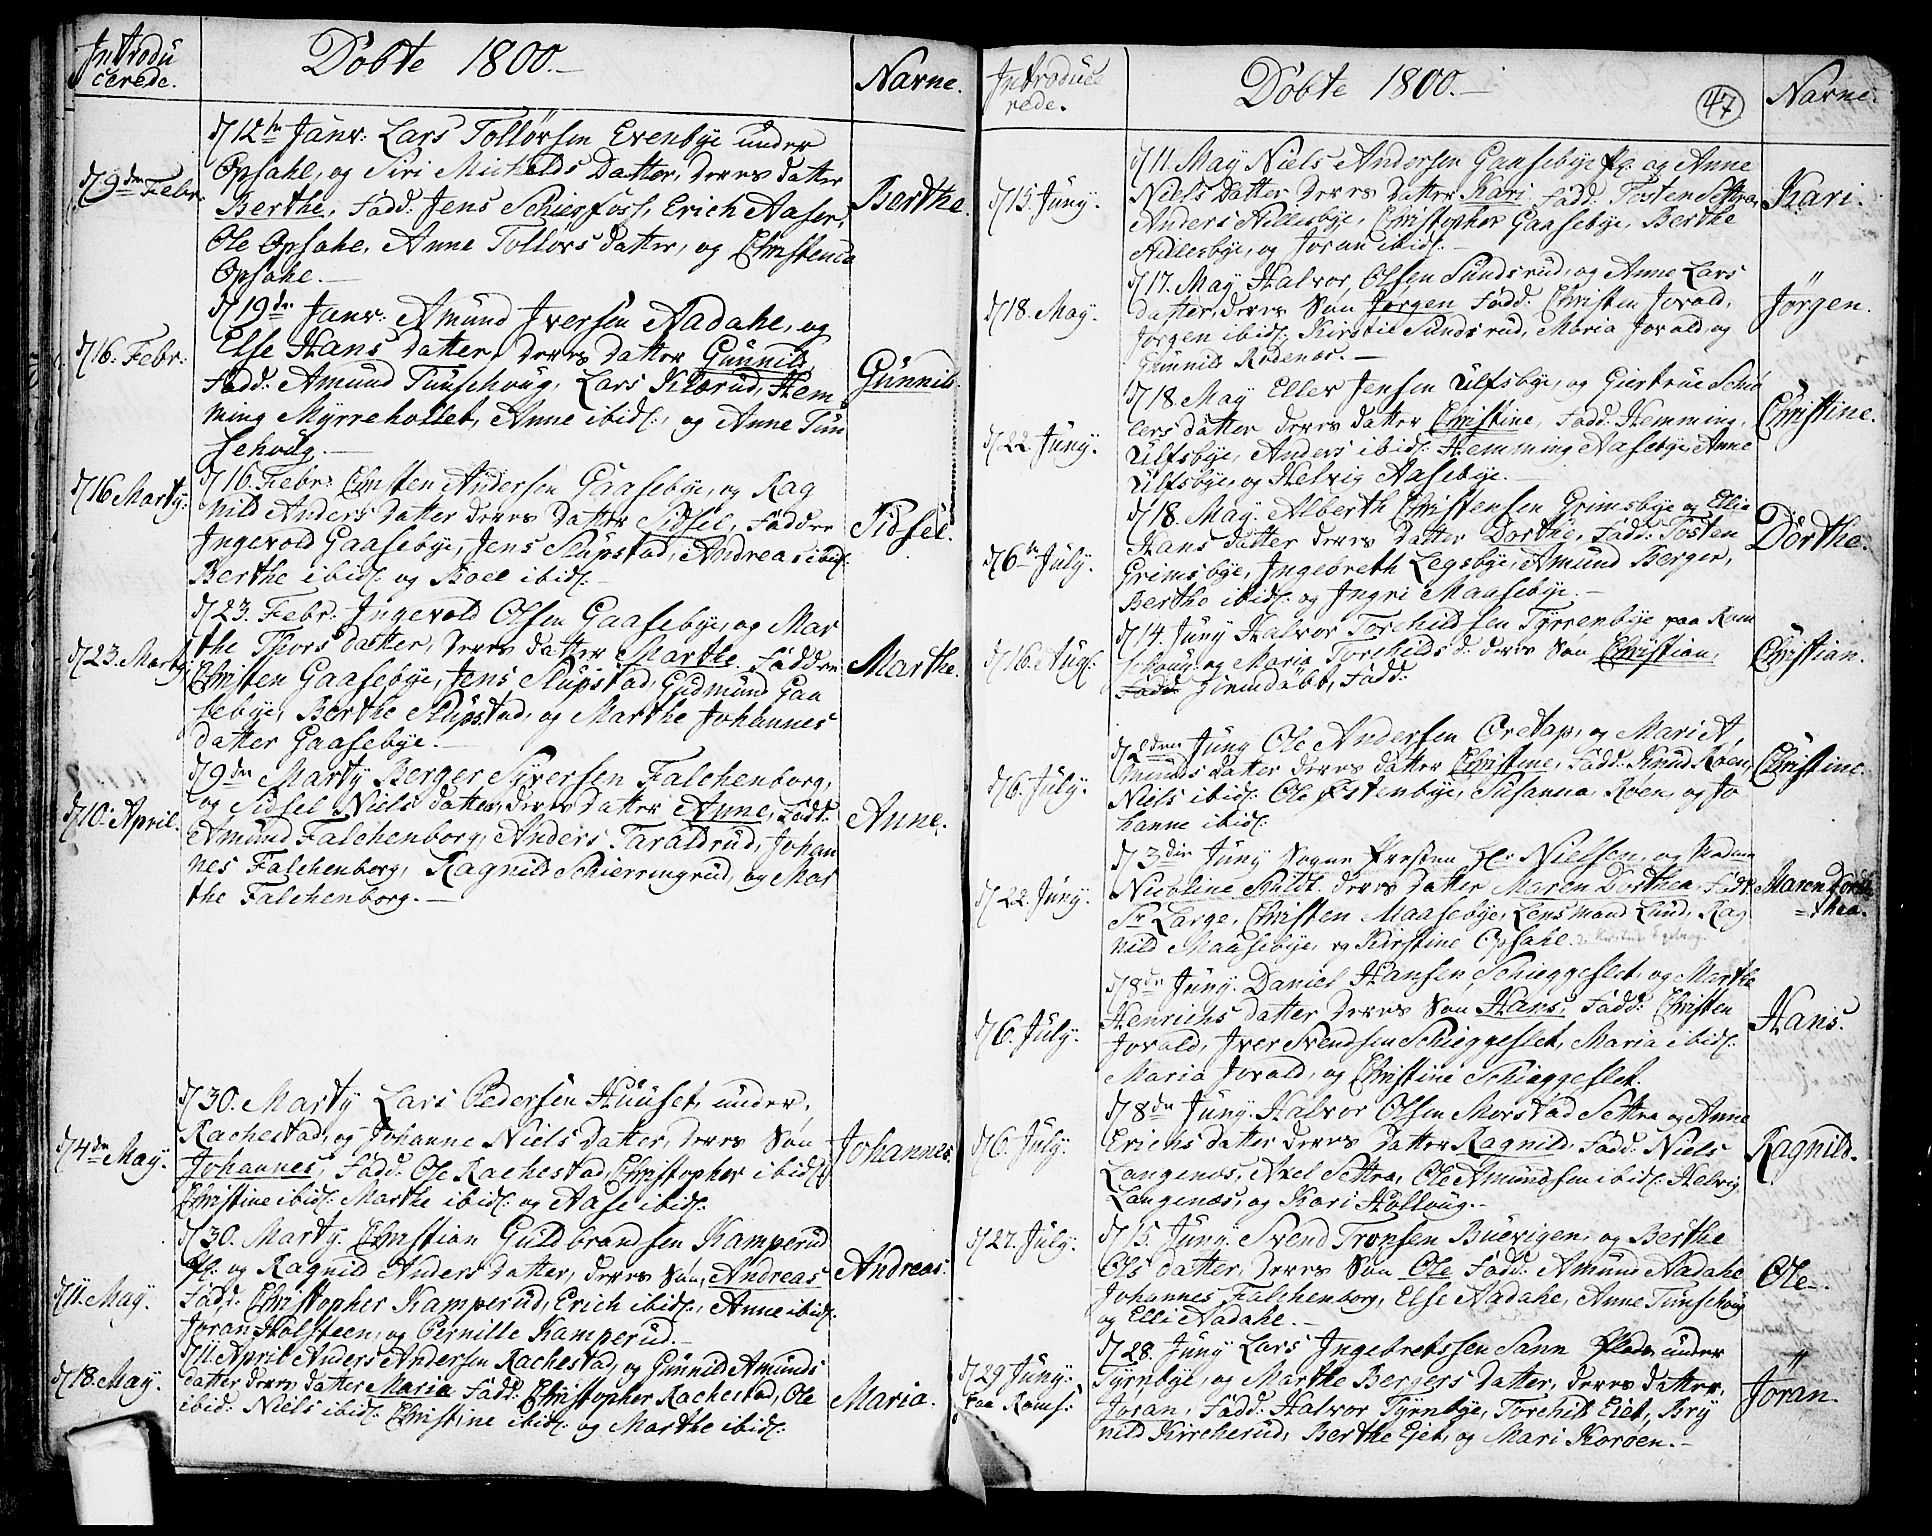 Introdu
cerede.
Döbte 1800.-
Navne.
d/9de Febr.
d/12te Janv: Lars Tollorsen Evenbye under
Opsahl, og Siri Michels Datter, deres datter
Berthe, Fadd: Jens Schiersfoss, Erich Aaser,
Ole Opsahl, Anne Tollors datter, og Christence
Opsahl.-
Berthe.
d/16: Febr:
d/19de Janv: Amund Iversen Aadahl, og
Else Hans datter, deres datter Gunnild,
Fadd: Amund Tunschoug, Lars Klarud, Hem
ming Myrrehollet, Anne ibid:, og Anne Tun
schoug.-
Gunnild.
d/16 Marty.
d/16. Febr: Christen Andersen Gaasebye, og Rag
nild Anders datter deres datter Sidsel, Faddre
Ingevold Gaasebye, Jens Slupstad, Andreas ibid:
Berthe ibid: og Boel ibid:-
Sidsel.
d/23. Marty
d/23. Febr: Ingevold Olsen Gaasebye, og Mar
the Thors datter, deres datter Marthe. Faddre
Christen Gaasebye, Jens Slupstad, Gudmund Gaa
sebye, Berthe Slupstad, og Marthe Johannes
datter Gaasebye.-
Marthe.
d/10: April.
d/9de Marty Berger Syversen Falchenborg,
og Sidsel Niels datter, deres datter Anne, Fadd:
Amund Falchenborg, Anders Taraldrud, Johan
nes Falchenborg, Ragnild Schierringrud, og Mar
the Falchenborg.-
Anne.
d/4de May.
d/30. Marty Lars Pedersen Huuset, under
Rachestad, og Johanne Niels datter, deres Søn
Johannes, Fadd: Ole Rachestad, Christopher ibid:
Christine ibid: Marthe ibid: og Aase ibid:
Johannes.
d/11. May.
d/30. Marty. Christian Guldbrandsen Kamperud
Pl: og Ragnild Anders datter, deres Søn, Andreas
Fadd: Christopher Kamperud, Erich ibid:, Anne ibid:
Joran Holsteen, og Pernille Kamperud.-
Andreas.
d/18. May.
d/11. April Anders Andersen Rachestad, og Gunnild Amunds
datter deres datter Maria Fadd: Christopher Rachestad, Ole
ibid: Niels ibid: Christine ibid: og Marthe ibid:
Maria.
Introduce
rede.
Döbte 1800.-
47
Navne.
d/15. Juny.
d/11. May Niels Andersen Gaasebye Pl: og Anne
Niels Datter deres datter Kari. Fadd: Tosten Settra,
Anders Nillesbye, Christopher Gaasebye, Berthe
Nillesbye, og Joran ibid:-
Kari.
d/18. May.
d/17. May Halvor Olsen Sundsrud, og Anne Lars
datter, deres Søn Jörgen Fadd: Christen Jovald,
Jörgen ibid: Kirstie Sundsrud, Maria Jovald og
Gunnild Rödenæs.-
Jörgen.
d/22 Juny.
d/18. May Eller Jensen Ulfsbye, og Giertrue Schu
lers datter deres datter Christine, Fadd: Hemming
Ulfsbye, Anders ibid: Hemming Aasebye, Anne
Ulfsbye, og Helvig Aasebye.-
Christine.
d/6te July.
d/18. May. Alberth Christensen Grimsbye og Ellie
Hans datter deres datter Dorthe, Fadd: Tosten
Grimsbye, Ingebreth Legsbye, Amund Berger,
Berthe ibid: og Ingri Maasebye.-
Dorthe.
d/16. Aug:
d/14. Juny Halvor Torchildsen Tyrrenbye paa Rom
schoug og Maria Torchilds d: deres Søn Christian,
Fadd: hiemdöbt, Fadd:
Christian.
d/6. July.
d/2den Juny Ole Andersen Oretop, og Marie A,
munds datter deres datter Christine, Fadd: Knud Roen,
Niels ibid: Ole Østenbye, Susanna Roen, og Jo
hanne ibid:
Christine.
d/22. Juny.
d/3die Juny Sogne Præsten Hr: Nielsen, og Madame
Nicoline Huldt. deres datter Maren Dorthea, Fadd:
Sr Large, Christen Maasebye, Lensmand Lund, Rag
nild Maasebye, og Kirstine Opsahl.
Maren Dor
=thea.
d/6. July.
d/8de Juny. Daniel Hansen Schieggeslet, og Marthe
Henrichs datter deres Søn Hans, Fadd: Christen
Jovald, Iver Svendsen Schieggeslet, Maria ibid:
Maria Jovald, og Christine Schieggeslet.
Hans.
d/6. July.
d/8de Juny. Halvor Olsen Morstad Settra og Anne
Erichs datter deres datter Ragnild. Fadd: Niels
Langenæs, Axel Settra, Ole Amundsen ibid: Helvig
Langenæs, og Kari Holtoug.-
Ragnild.
d/27. July.
d/15. Juny. Svend Tronsen Buevigen, og Berthe
Ols datter, deres Søn Ole Fadd: Amund Aadahl
Johannes Falchenborg, Else Aadahl, Anne Tunschoug
og Elli Aadahl.-
Ole.
d/29 Juny.
paa Roms:
d/28. Juny Lars Ingebretssen Sann Plads under
Tyrnbye, og Marthe Bergers datter, deres datter,
Joran, Fadd: Halvor Tyrnbye, Torchild Eiet, Bry
nild Kircherud, Berthe Ejet, og Mari Koroen.-
Joran.